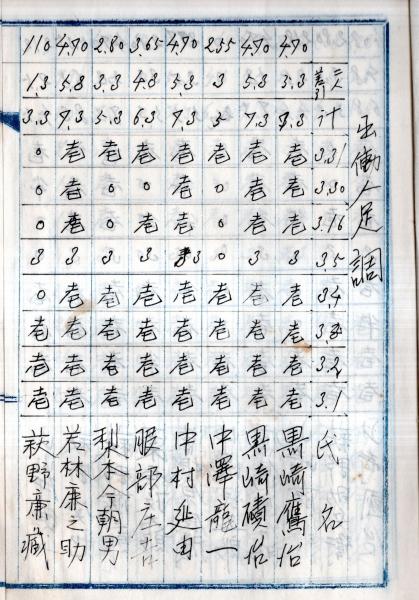 出働人足調
二人差引 計 3.31 3.30 3.16 3.5 3.4 3.3 3.2 3.1 氏名
4.70 5.3 7.3 壱 壱 壱 3 壱 壱 壱 壱 黒崎鷹治
4.70 5.3 7.3 壱 壱 壱 3 壱 壱 壱 壱 黒崎碩治
2.55 3 5 壱 0 0 0 壱 壱 壱 壱 中澤龍一
4.70 5.3 7.3 壱 壱 壱 3 壱 壱 壱 壱 中村延由
3.65 4.3 6.3 壱 0 壱 3 壱 壱 壱 壱 服部庄吉
2.80 3.3 5.3 壱 0 0 3 壱 壱 壱 壱 梨本今朝男
4.70 5.3 7.3 壱 壱 壱 3 壱 壱 壱 壱 若林康之助
110 1.3 3.3 0 0 0 3 0 壱 壱 壱 荻野廉藏